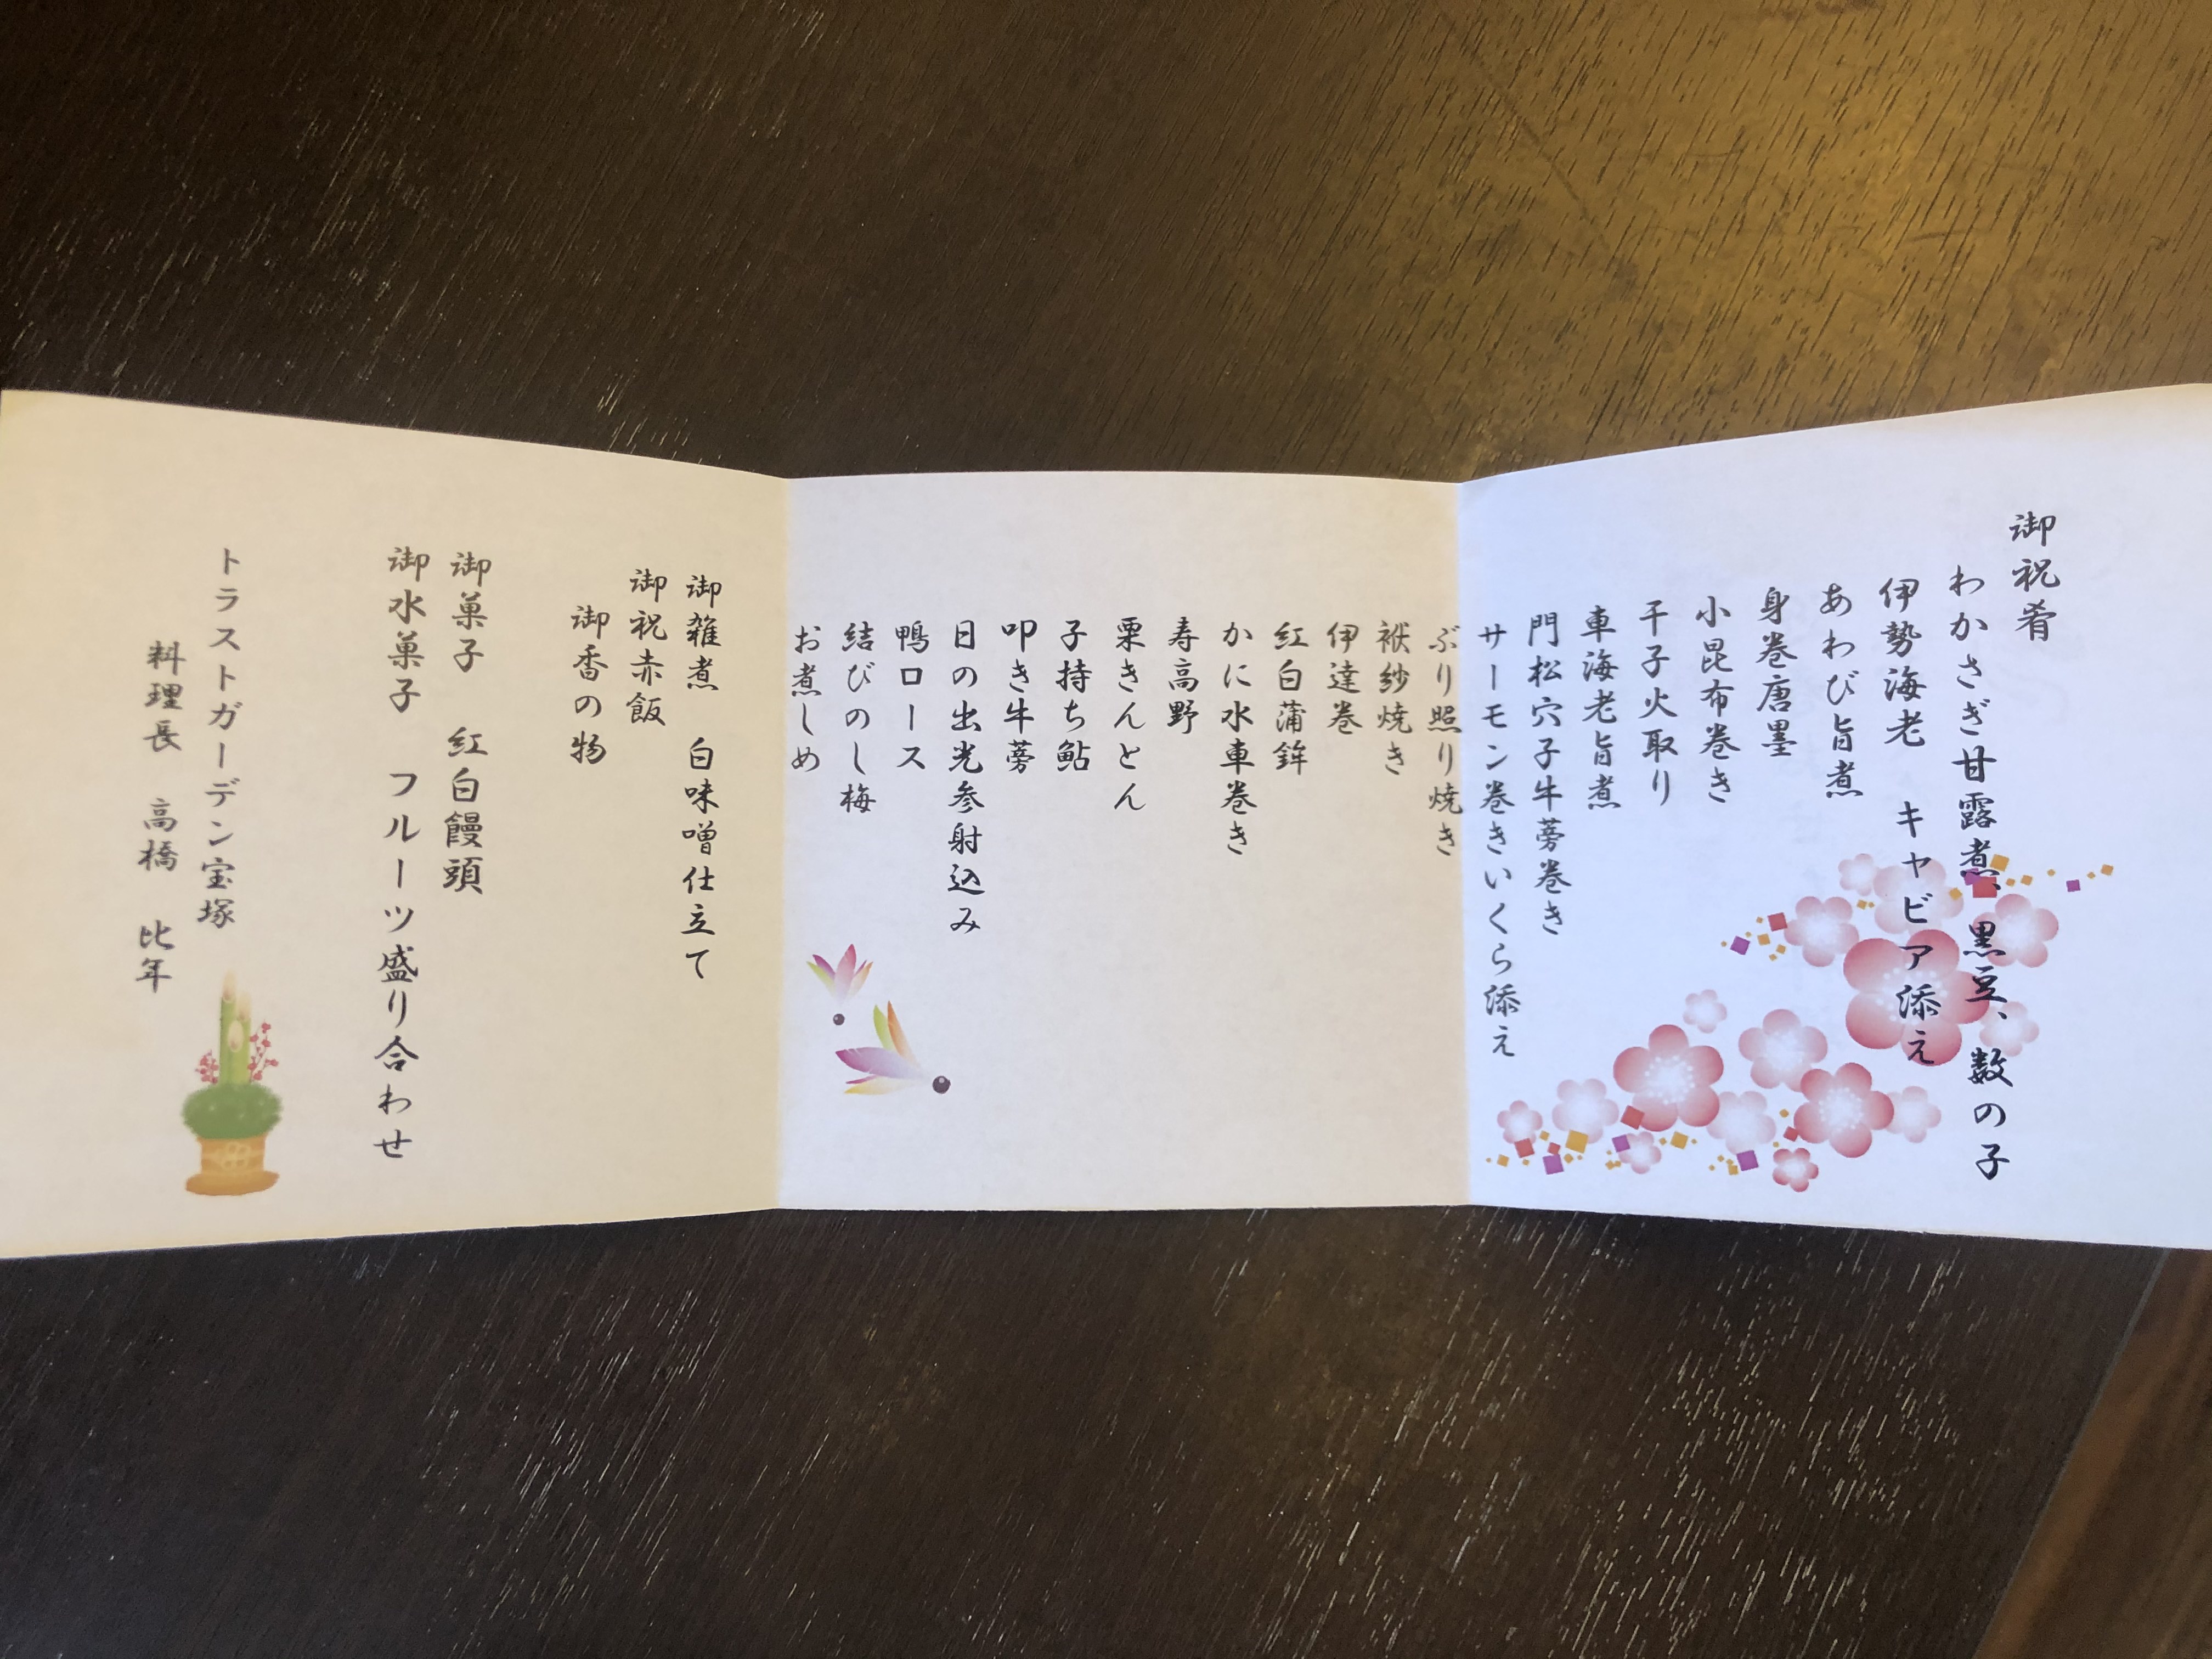 御祝肴
わかさぎ甘露煮、黒豆、数の子
伊勢海老 キャビア添え
あわび旨煮
身巻唐墨
小昆布巻き
干子火取り
車海老旨煮
門松穴子牛蒡巻き
サーモン巻きいくら添え
ぶり照り焼き
袱紗焼き
伊達巻
紅白蒲鉾
かに水車巻き
寿高野
栗きんとん
子持ち鮎
叩き牛蒡
日の出光参射込み
鴨ロース
結びのし梅
お煮しめ
御雑煮 白味噌仕立て
御祝赤飯
御香の物
御菓子 紅白饅頭
御水菓子 フルーツ盛り合わせ
トラストガーデン宝塚
料理長 高橋 比年